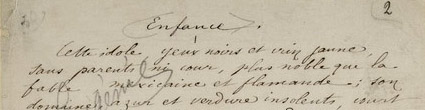 2
Enfance.
Cette idole, yeux noirs et crin jaune,
sans parents ni cour, plus noble que la
fable, mexicaine et flamande ; son
domaine, azur et verdure insolents, court